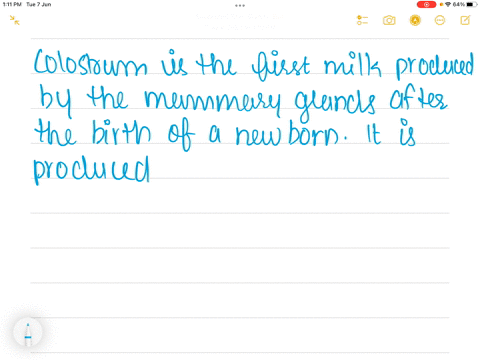 1:11 PM Tue 7 Jun
64%
Colostrum is the first milk produced
by the mammary glands after
the birth of a newborn. It is
produced